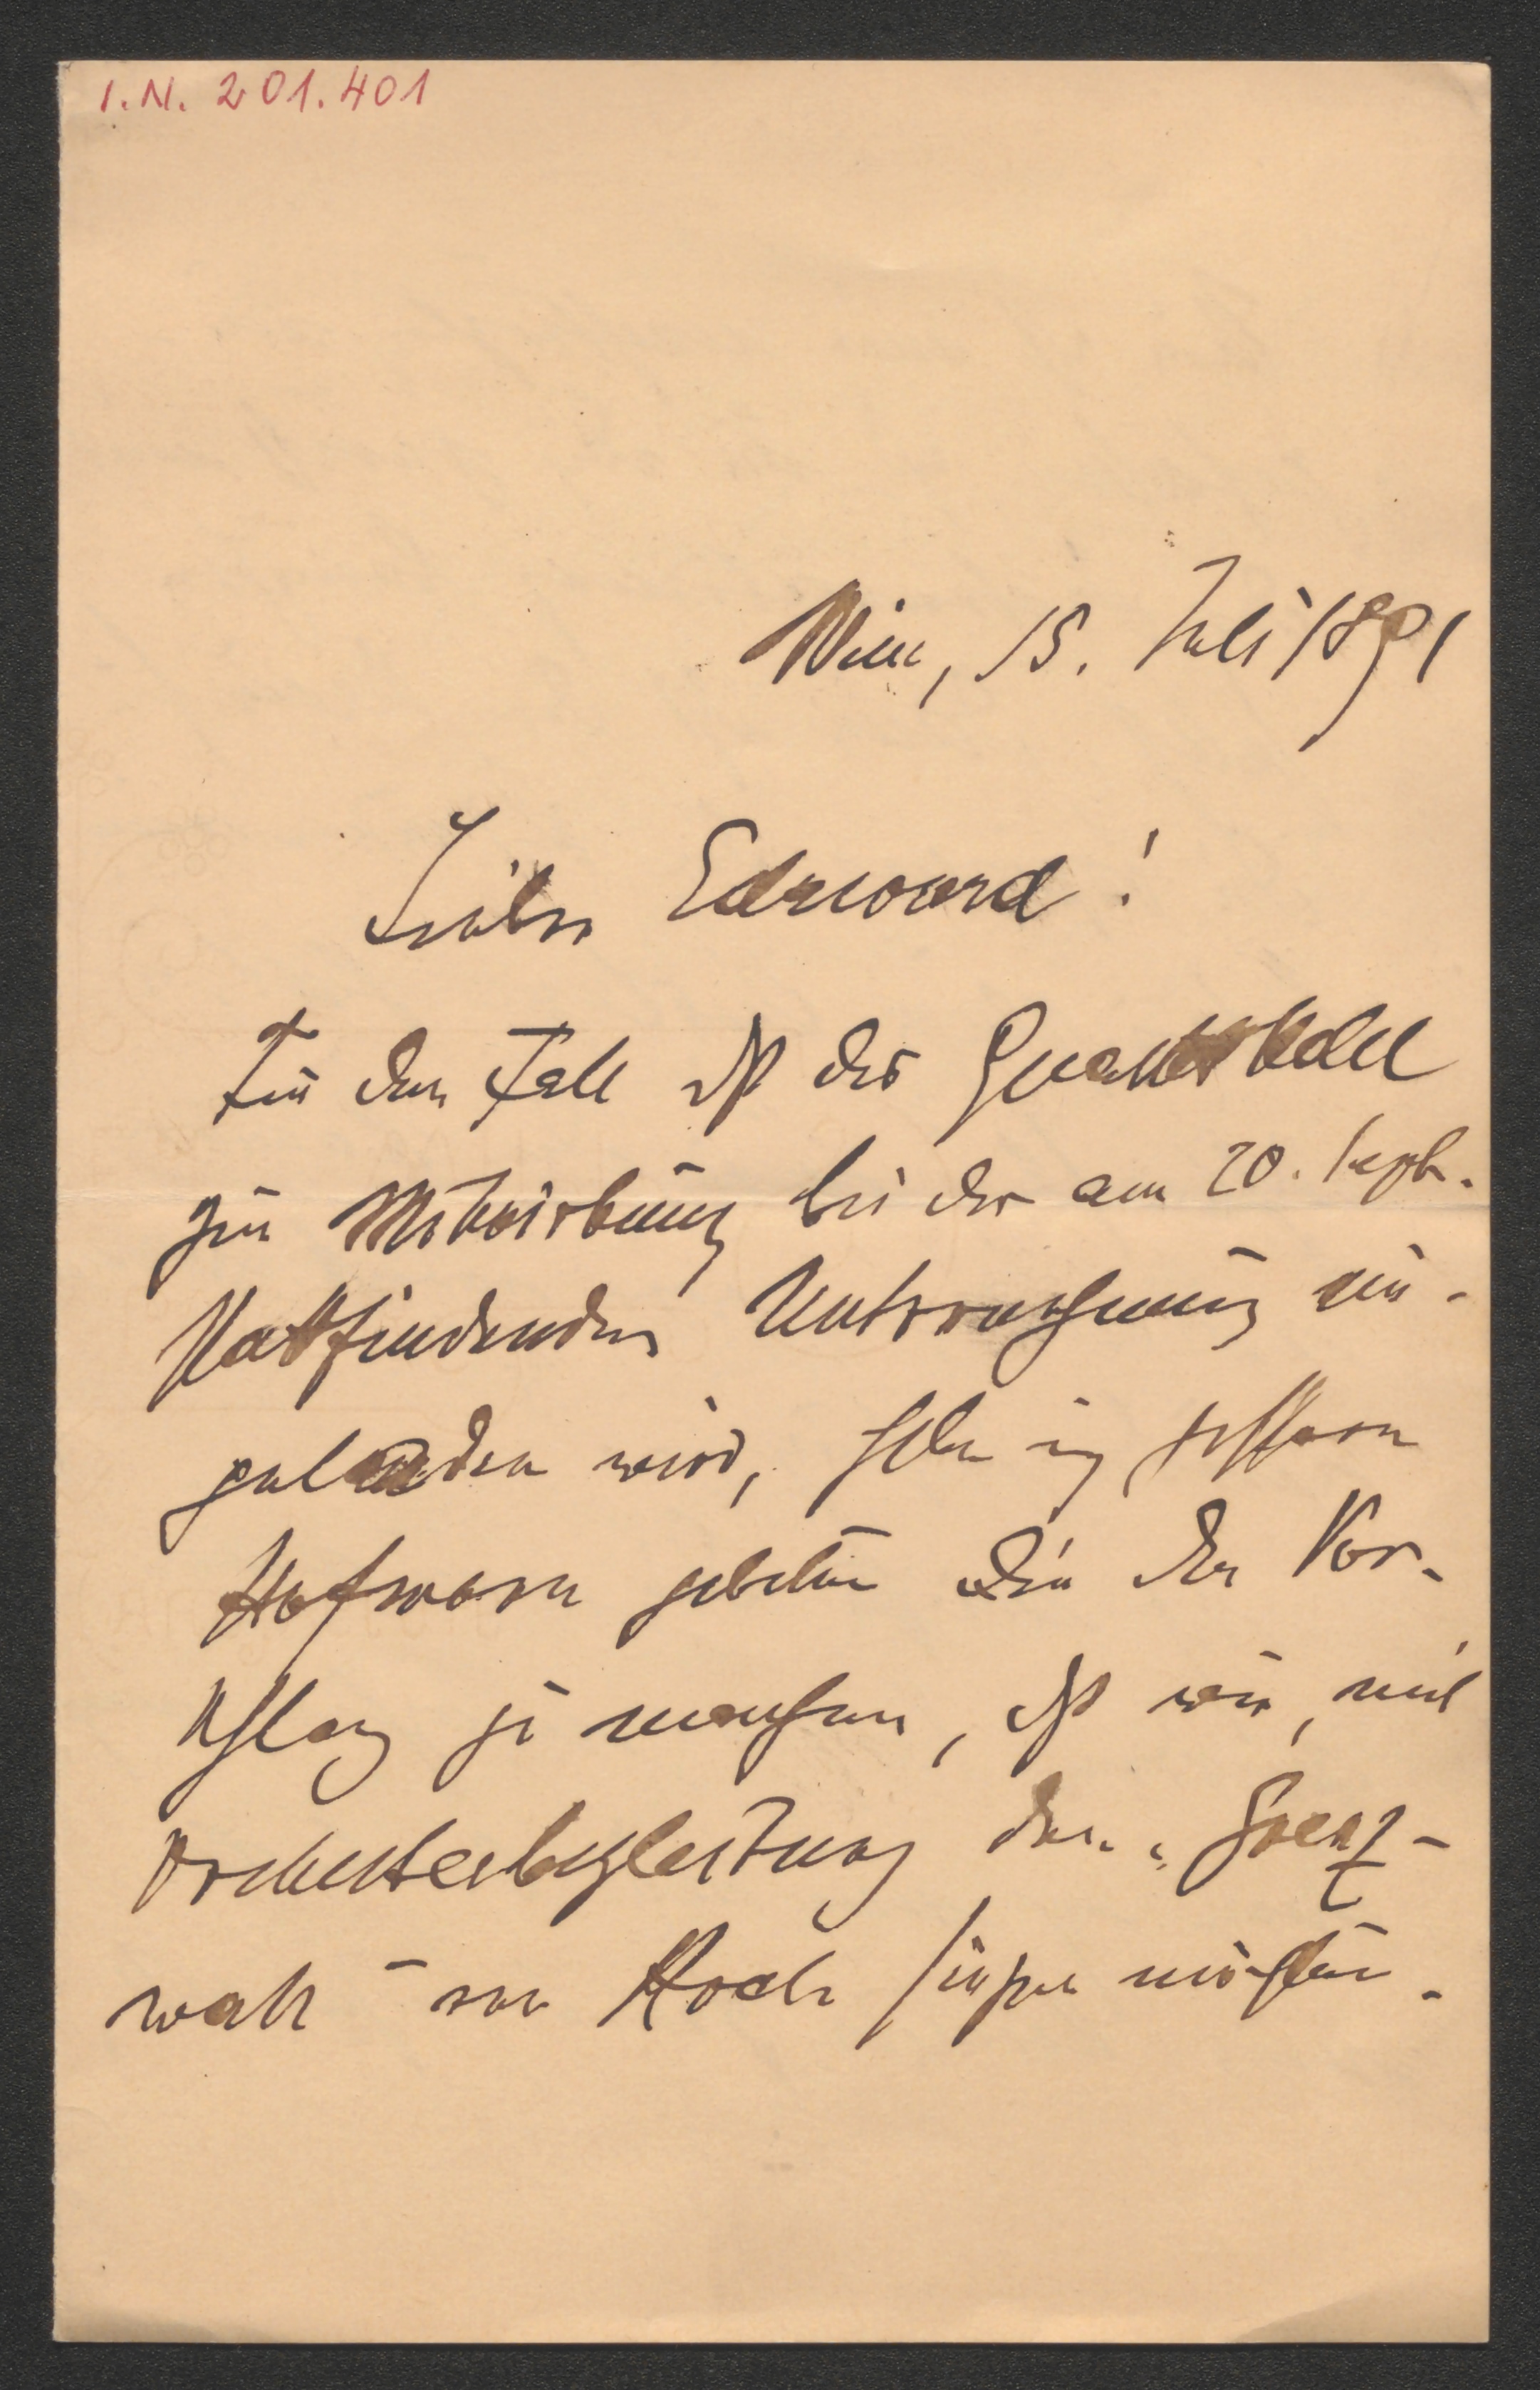 I.N. 201.401
Wien, 15. Juli 1891
Lieber Edmund!
Für den Fall als das Quartett
zur Mitwirkung bei der am 20. Sept.
stattfindenden Unternehmung ein-
geladen wird, habe ich
gebeten Dir den Vor-
schlag zu machen, daß wir, mit
Orchesterbegleitung den
von Koch singen möchten.